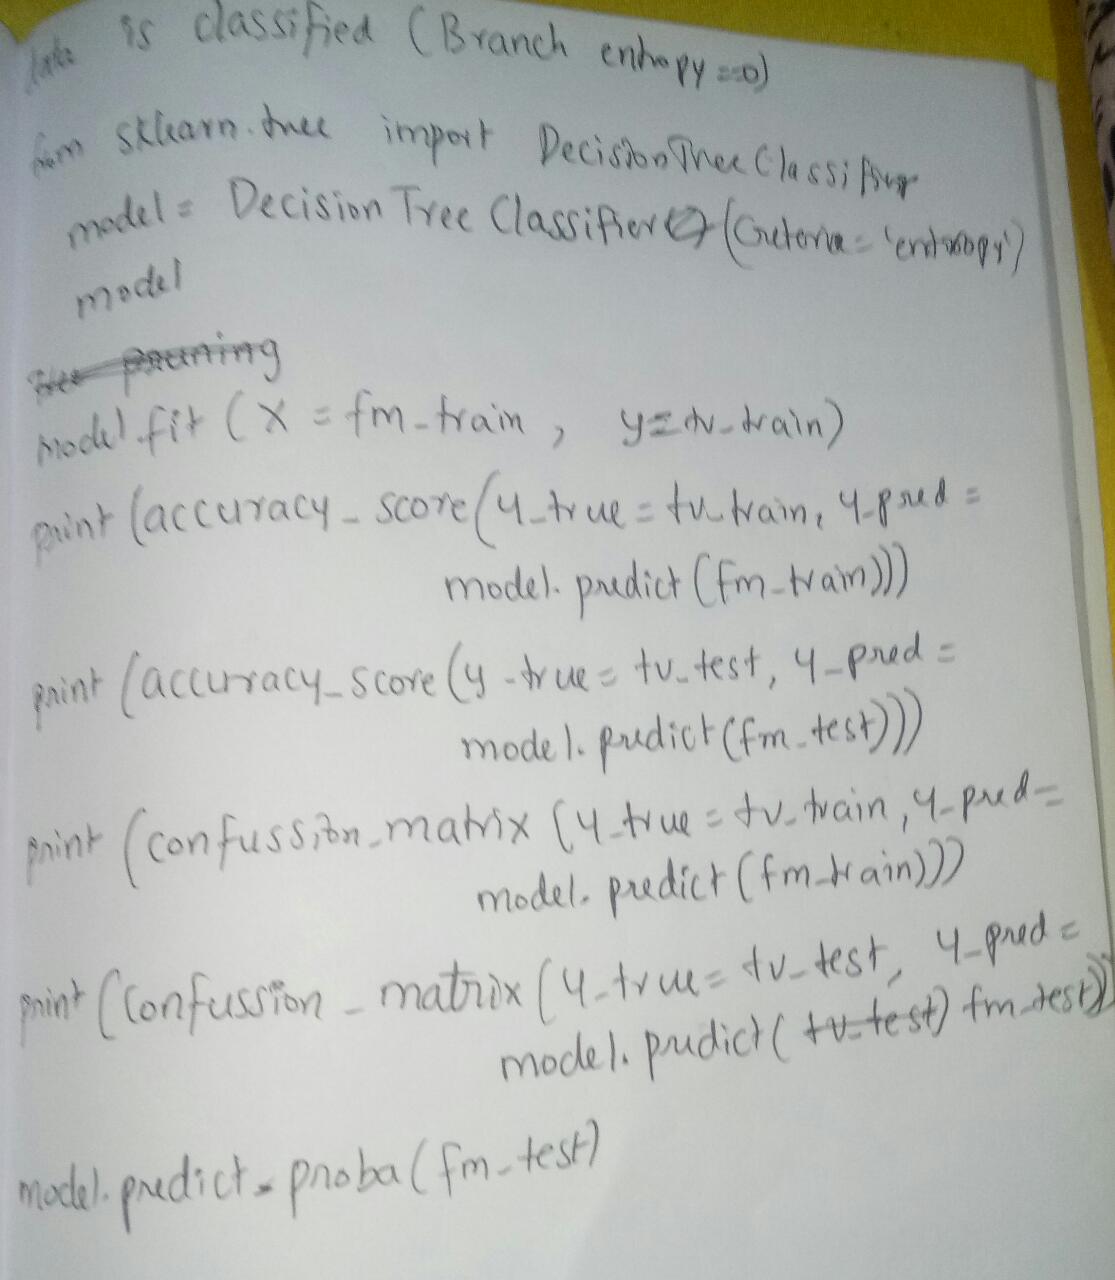 data is classified (Branch entropy ==0)
from sklearn.tree import DecisionTreeClassifier
model = Decision Tree Classifier (Criteria = 'entropy')
model
pruning
model.fit (X = fm_train, y=tv_train)
print (accuracy_score(y_true = tv_train, y_pred =
model.predict (fm_train)))
print (accuracy_score (y_true = tv_test, y_pred =
model.predict (fm_test)))
print (confussion_matrix (y_true = tv_train, y_pred =
model.predict (fm_train)))
print (confussion_matrix (y_true = tv_test, y_pred =
model.predict (tv_test) fm_test))
model.predict_proba (fm_test)